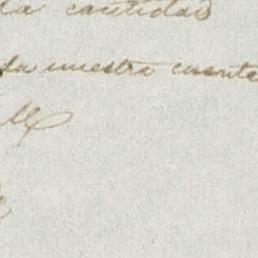 la cantidad
da nuestra cuenta